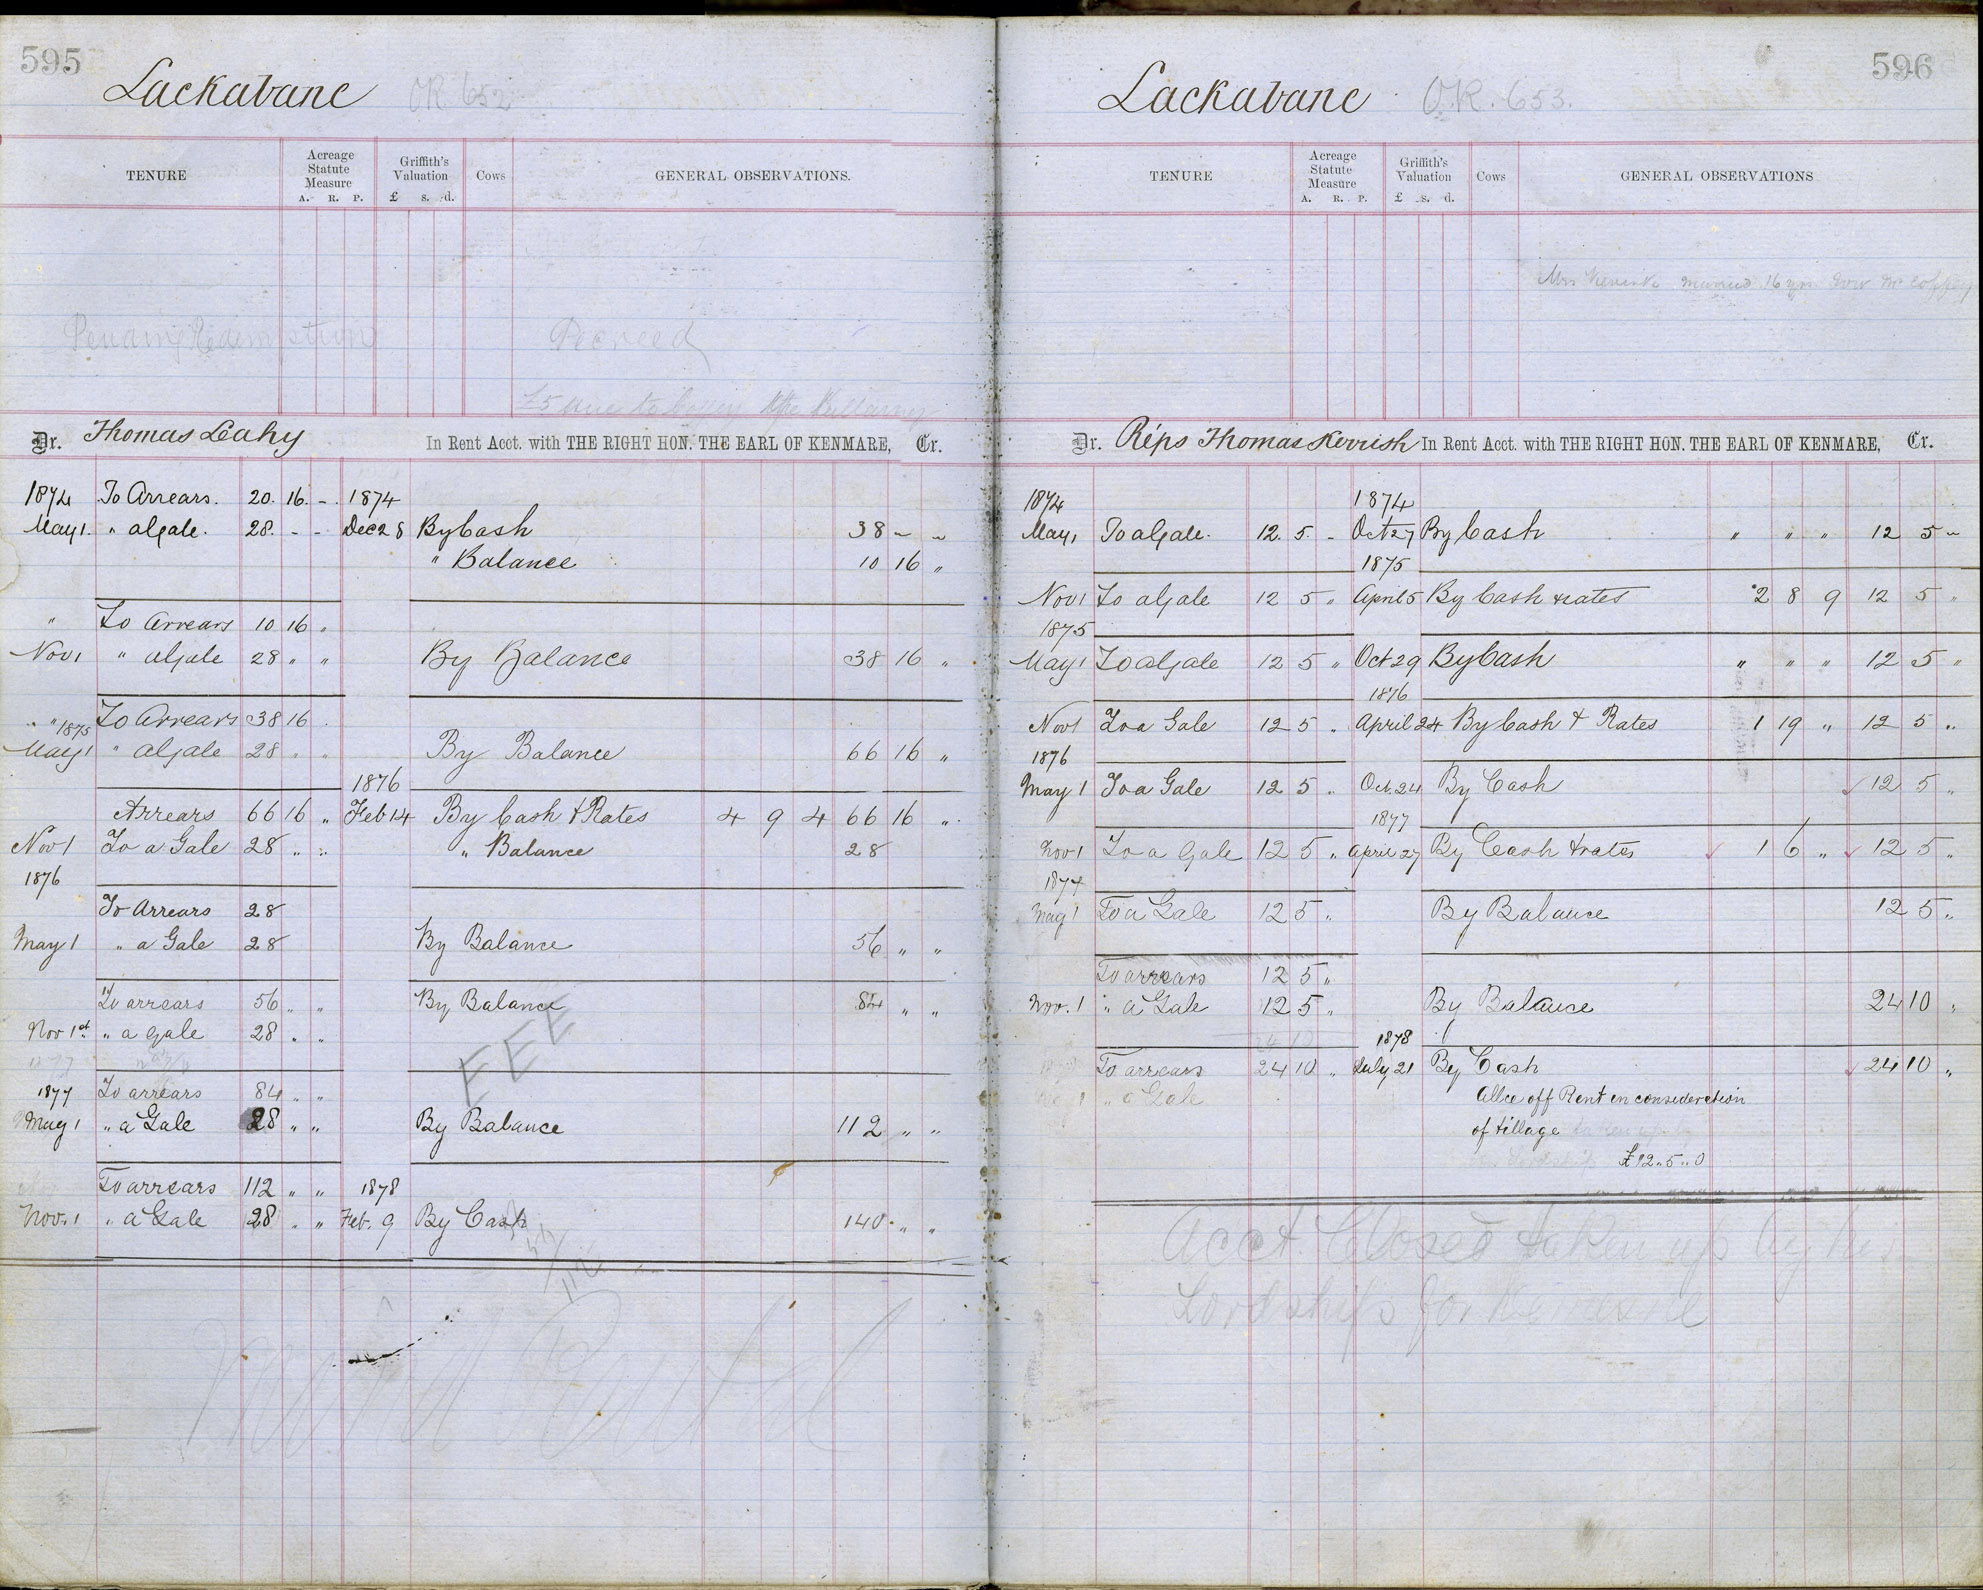 595
Lackabane OR. 652
TENURE
Acreage Statute Measure
A. R. P.
Griffith's Valuation
£ s. d.
Cows
GENERAL OBSERVATIONS.
Pending Redemption
Decreed
£5 due to
Dr. Thomas Leahy In Rent Acct. with THE RIGHT HON. THE EARL OF KENMARE, Cr.
1874 To Arrears. 20. 16. - 1874
May 1. " a Gale. 28. - - Dec 28 By Cash 38 - -
" Balance 10 16 "
" To Arrears 10 16 "
Nov 1 " a Gale 28 " " By Balance 38 16 "
" " To Arrears 38 16
1875
May 1 " a Gale 28 " " By Balance 66 16 "
1876
Arrears 66 16 " Feb 14 By Cash & Rates 4 9 4 66 16 "
Nov 1 To a Gale 28 " " " Balance 28
1876
To Arrears 28
May 1 " a Gale 28 By Balance 56 " "
To arrears 56 " " By Balance 84 " "
Nov 1st " a Gale 28 " "
EEE
1877 To arrears 84 " "
May 1 " a Gale 28 " " By Balance 112 " "
To arrears 112 " " 1878
Nov. 1 " a Gale 28 " " Feb. 9 By Cash 140 " "
Rental
596
Lackabane O.R. 653.
TENURE
Acreage Statute Measure
A. R. P.
Griffith's Valuation
£ s. d.
Cows
GENERAL OBSERVATIONS
Mrs Kerrish married 16 yrs now Mr Coffey
Dr. Reps Thomas Kerrish In Rent Acct. with THE RIGHT HON. THE EARL OF KENMARE, Cr.
1874 1874
May 1 To a Gale. 12. 5. - Oct 27 By Cash " " " 12 5 -
1875
Nov 1 To a Gale 12 5 " April 5 By Cash & rates 2 8 9 12 5 "
1875
May 1 To a Gale 12 5 " Oct 29 By Cash " " " 12 5 "
1876
Nov 1 To a Gale 12 5 " April 24 By Cash & Rates 1 19 " 12 5 "
1876
May 1 To a Gale 12 5 " Oct. 24 By Cash ✓ 12 5 "
1877
Nov 1 To a Gale 12 5 " April 27 By Cash & rates ✓ 1 6 " ✓ 12 5 "
1877
May 1 To a Gale 12 5 " By Balance 12 5 "
To arrears 12 5 "
Nov. 1 " a Gale 12 5 " By Balance 24 10 "
24 10 1878
To arrears 24 10 " July 21 By Cash ✓ 24 10 "
" a Gale Allce off Rent in consideration
of tillage taken up by
Lordship £12..5..0
Acct. Closed taken up by his
Lordships for